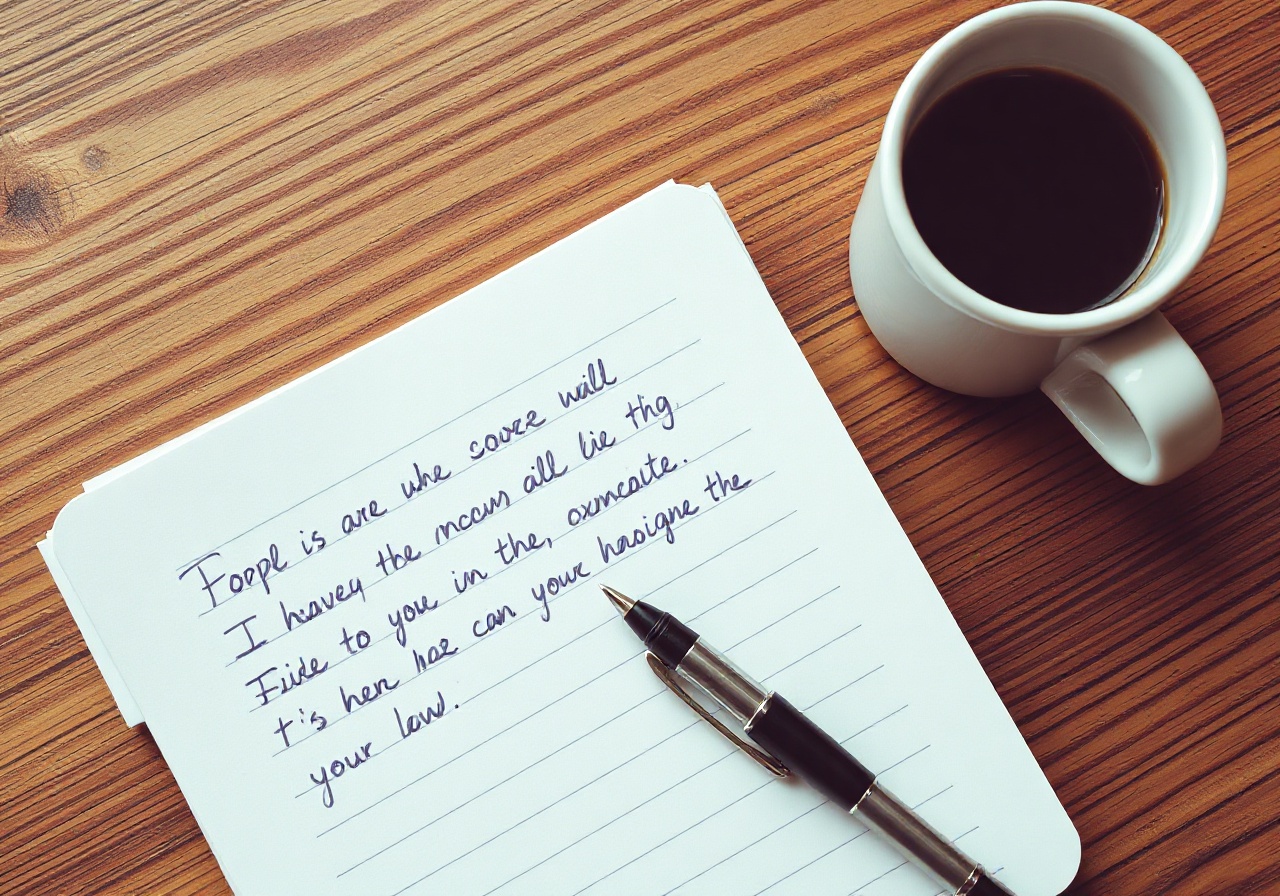 Foopl is are whe coure will
I hiavey the mccus aill lie thg
Fiide to you in the, oxmcaite.
t's hen hae can your hasigne the
your law.